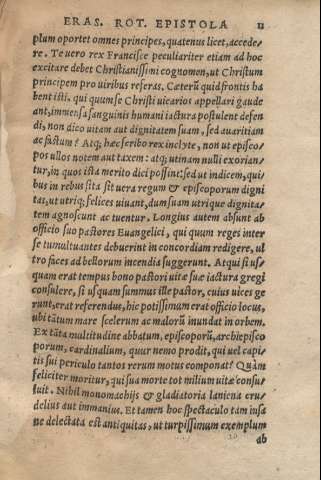 ERAS. ROT. EPISTOLA 11
plum oportet omnes principes, quatenus licet, accede/
re. Te uero rex Francisce peculiariter etiam ad hoc
excitare debet Christianissimi cognomen, ut Christum
principem pro uiribus referas. Cæterū quid frontis ha
bent isti. qui quum se Christi uicarios appellari gaude
ant, immensa sanguinis humani iactura postulent defen
di, non dico uitam aut dignitatem suam, sed auaritiam
ac fastum? Atq; hæc scribo rex inclyte, non ut episco/
pos ullos notem aut taxem: atq; utinam nulli exorian/
tur, in quos ista merito dici possint. sed ut indicem, qui/
bus in rebus sita sit uera regum & episcoporum digni
tas, ut utriq; felices uiuant, dum suam utrique dignita/
tem agnoscunt ac tuentur. Longius autem absunt ab
officio suo pastores Euangelici, qui quum reges inter
se tumultuantes debuerint in concordiam redigere, ul
tro faces ad bellorum incendia suggerunt. Atqui si us/
quam erat tempus bono pastori uitæ suæ iactura gregi
consulere, si usquam summus ille pastor, cuius uices ge
runt, erat referendus, hic potissimum erat officio locus,
ubi tātum mare scelerum ac malorū inundat in orbem.
Ex tāta multitudine abbatum, episcoporū, archiepisco
porum, cardinalium, quur nemo prodit, qui uel capi/
tis sui periculo tantos rerum motus componat? Quàm
feliciter moritur, qui sua morte tot milium uitæ consu/
luit. Nihil monomachijs & gladiatoria laniena cru/
delius aut immanius. Et tamen hoc spectaculo tam insa
ne delectata est antiquitas, ut turpissimum exemplum
ab